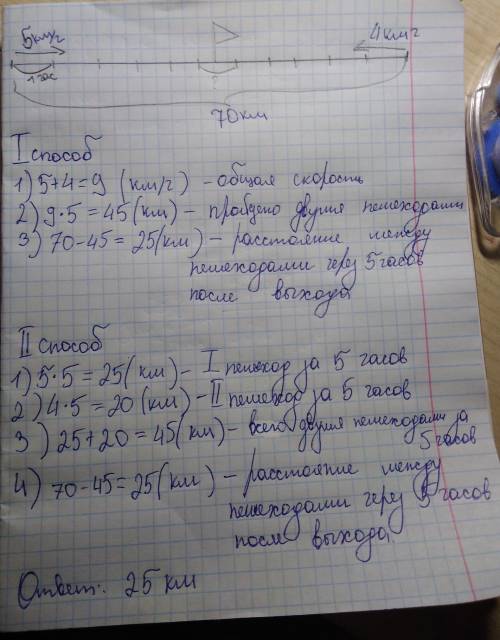 5км/ч
4км/ч
1 час
?
70км
I способ
1) 5+4=9 (км/ч) - общая скорость
2) 9·5=45(км) - пройдено двумя пешеходами
3) 70-45=25(км) - расстояние между
пешеходами через 5 часов
после выхода
II способ
1) 5·5=25(км) - I пешеход за 5 часов
2) 4·5=20(км) - II пешеход за 5 часов
3) 25+20=45(км) - всего двумя пешеходами за
5 часов
4) 70-45=25(км) - расстояние между
пешеходами через 5 часов
после выхода.
Ответ: 25 км